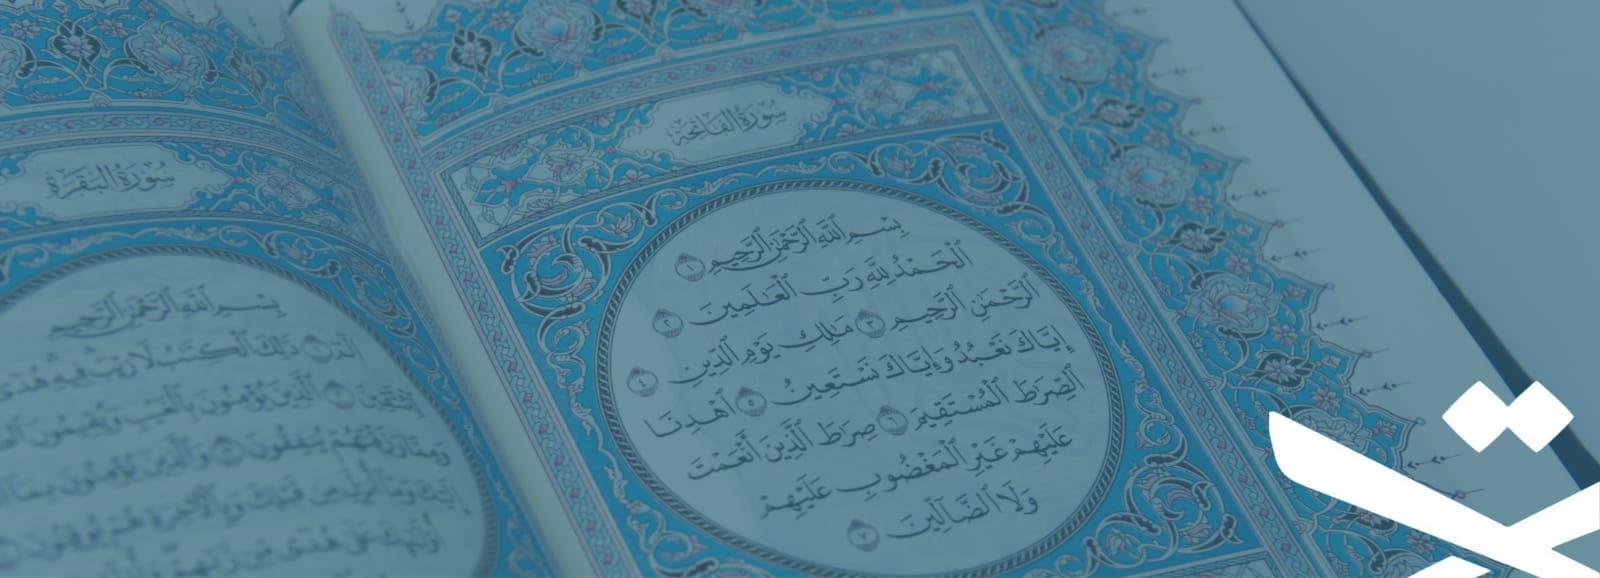 سُورَةُ الفَاتِحَةِ
بِسْمِ ٱللَّهِ ٱلرَّحْمَٰنِ ٱلرَّحِيمِ ١
ٱلْحَمْدُ لِلَّهِ رَبِّ ٱلْعَٰلَمِينَ ٢
ٱلرَّحْمَٰنِ ٱلرَّحِيمِ ٣ مَٰلِكِ يَوْمِ ٱلدِّينِ ٤
إِيَّاكَ نَعْبُدُ وَإِيَّاكَ نَسْتَعِينُ ٥ ٱهْدِنَا
ٱلصِّرَٰطَ ٱلْمُسْتَقِيمَ ٦ صِرَٰطَ ٱلَّذِينَ أَنْعَمْتَ
عَلَيْهِمْ غَيْرِ ٱلْمَغْضُوبِ عَلَيْهِمْ
وَلَا ٱلضَّآلِّينَ ٧
سُورَةُ البَقَرَةِ
بِسْمِ ٱللَّهِ ٱلرَّحْمَٰنِ ٱلرَّحِيمِ
الٓمٓ ١ ذَٰلِكَ ٱلْكِتَٰبُ لَا رَيْبَ فِيهِ هُدًى
لِّلْمُتَّقِينَ ٢ ٱلَّذِينَ يُؤْمِنُونَ بِٱلْغَيْبِ وَيُقِيمُونَ
وَمِمَّا رَزَقْنَٰهُمْ يُنفِقُونَ ٣ وَٱلَّذِينَ يُؤْمِنُونَ بِمَآ
إِلَيْكَ وَمَآ أُنزِلَ مِن قَبْلِكَ وَبِٱلْءَاخِرَةِ هُمْ يُوقِنُونَ
أُو۟لَٰٓئِكَ عَلَىٰ هُدًى مِّن رَّبِّهِمْ